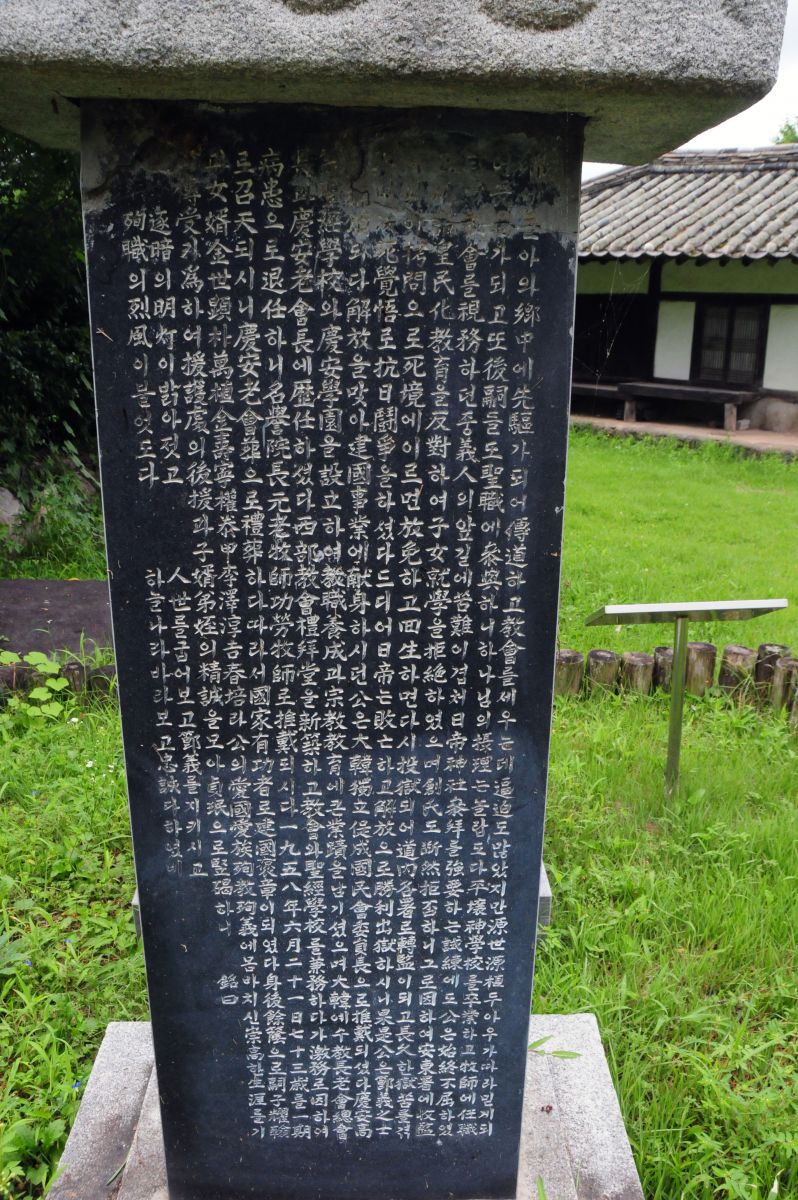 아의鄕中에先驅가되어傳道하고敎會를세우는데逼迫도많았지만源世源植두아우가따라믿게되
가되고또後嗣들도聖職에參與하니하나님의攝理는놀랍도다平壤神學校를卒業하고牧師에任職
會를視務하던主義人의앞길에苦難이겹쳐日帝神社參拜를强要하는試練에도公은始終不屈하였
皇民化敎育을反對하여子女就學을拒絶하였으며創氏도斷然拒否하니그로因하여安東署에收監
拷問으로死境에이르면放免하고回生하면다시投獄되어道內各署로轉監이되고長久한獄苦를겪
死覺悟로抗日鬪爭을하셨다드디어日帝는敗亡하고解放으로勝利出獄하시니果是公은鄭義之士
되다解放을맞아建國事業에献身하시던公은大韓獨立促成國民會委員長으로推戴되셨다慶安高
經學校와慶安學園을設立하여敎職養成과宗敎敎育에큰業蹟을남기셨으며大韓예수敎長老會總會
長과慶安老會長에歷任하셨다西部敎會禮拜堂을新築하고敎會와聖經學校를兼務하다가激務로因하여
病患으로退任하니名譽院長元老牧師功勞牧師로推戴되시다一九五八年六月二十一日七十三歲를一期
로召天되시니慶安老會葬으로禮葬하다따라서國家有功者로建國褒章이되였다身後餘蔭으로嗣子耀翰
과女婿金世顯朴萬植金壽寧權泰甲李澤淳吉春培라公의愛國愛族殉敎殉義에몸바치신崇高한生涯를기
受키爲하여援護處의後援과子婿弟姪의精誠을모아貞珉으로竪碣하니 銘曰
逐暗의明灯이밝아젓고 人世를굽어보고鄭義를지키시고
殉職의烈風이불엇도다 하늘나라바라보고忠誠다하였네